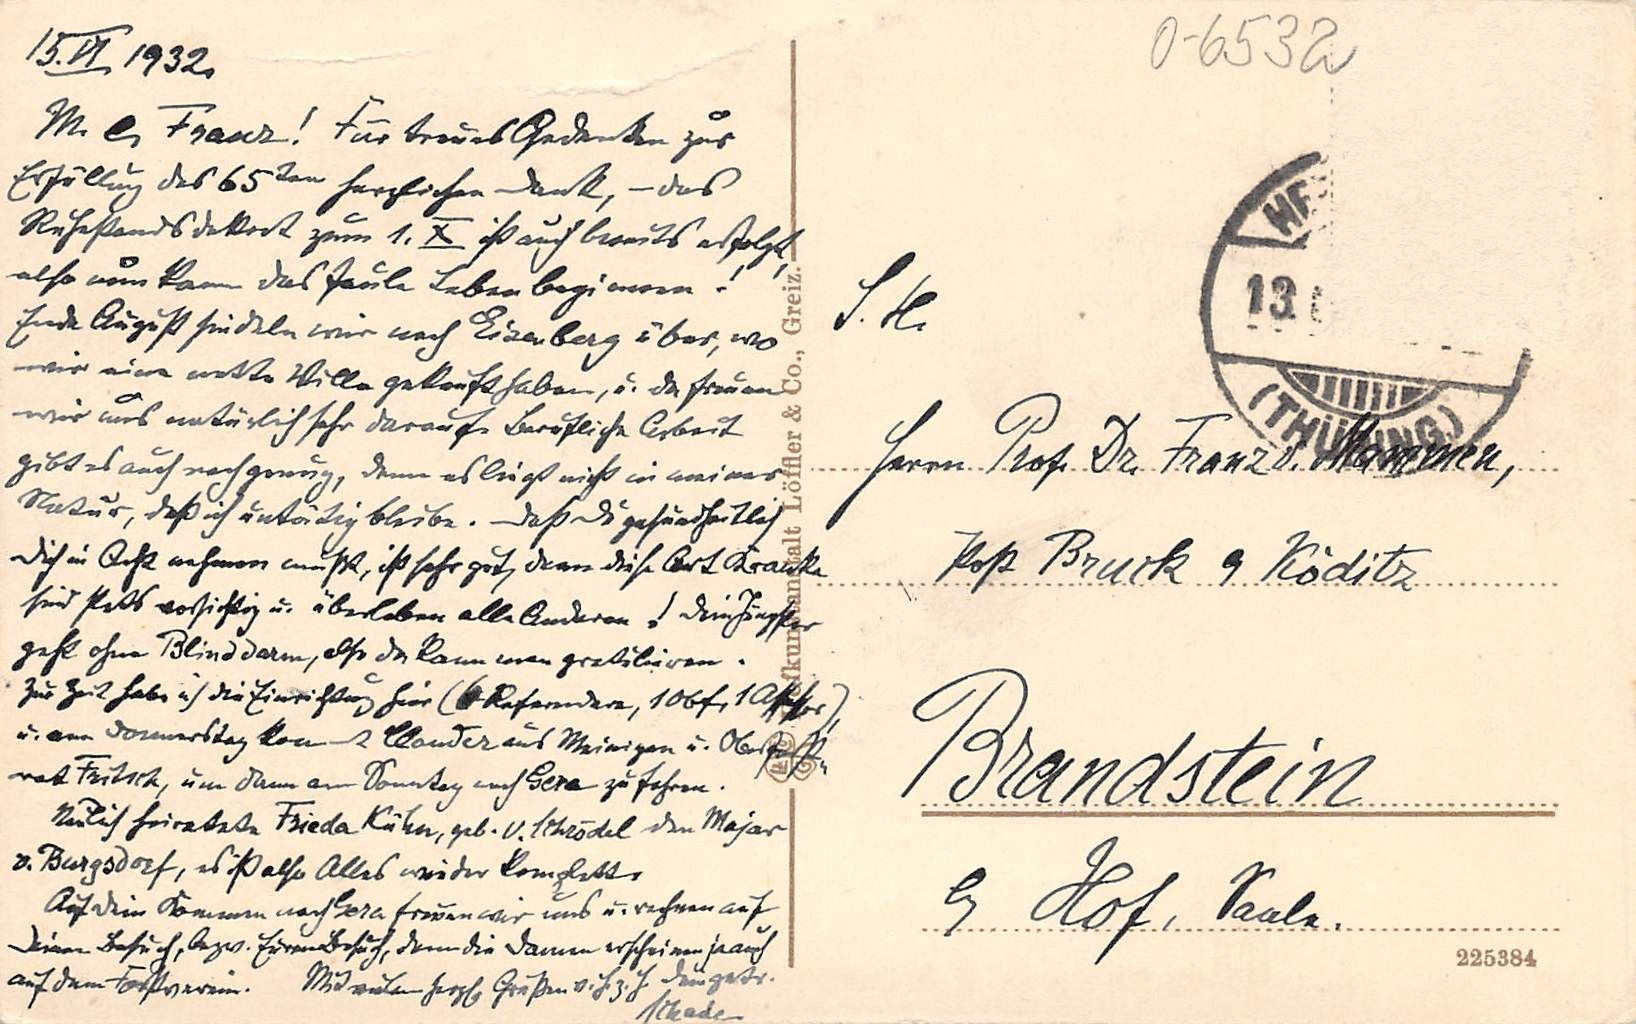 15.VI 1932.
M. l. Franz! Für treues Gedenken zur
Erfüllung des 65ten herzlichen Dank, – das
Ruhestandsdekret zum 1. X ist auch bereits erfolgt,
also nun kann das faule Leben beginnen!
Ende August siedeln wir nach Eisenberg über, wo
wir eine nette Villa gekauft haben, u. da freuen
wir uns natürlich sehr darauf. Berufliche Arbeit
gibt es auch noch genug, denn es liegt nicht in meiner
Natur, daß ich untätig bleibe. – Daß Du gesundheitlich
Dich in Acht nehmen mußt, ist sehr gut, denn diese Art Kranke
sind stets vorsichtig u. überleben alle Anderen! Dein Jüngster
geht ohne Blinddarm, also da kann man gratulieren.
Zur Zeit habe ich die Einrichtung hier (6 Referendare, 1 Obf, 1 Assessor),
u. am Donnerstag kommt aus Meinigen u. Oberforst-
rat Fritsch, um dann am Sonntag nach Gera zu fahren.
Neulich heiratete Frieda Kühn, geb. v. Schrödel den Major
v. Burgsdorf, es ist also Alles wieder komplett.
Auf Dein Kommen nach Gera freuen wir uns u. rechnen auf
Deinen Besuch, bezw. Euren Besuch, denn die Damen erscheinen ja auch
auf dem Forstverein. Mit vielen herzl. Grüßen v. H. z. H. Dein getr.
Schade
0-6532
13
(THÜRING)
S. H.
Herrn Prof. Dr. Franz v. Mammen,
Post Bruck b Ködlitz
Brandstein
b Hof, Saale.
225384
kunstanstalt Löffler & Co., Greiz.